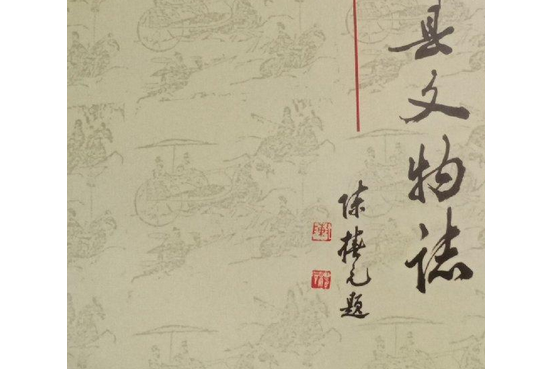 县文物誌
陈椿元题